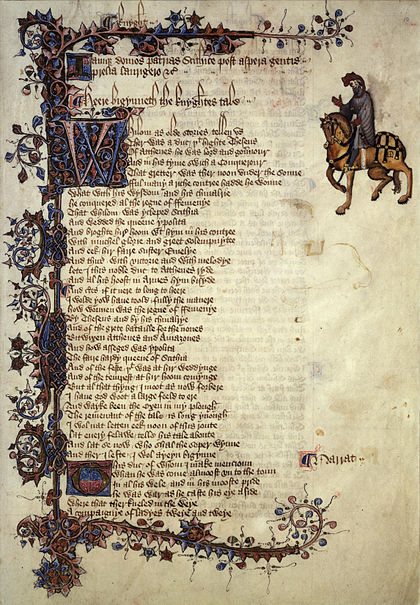 Knyght
Iamqȝ domos patrias Scithice post aspera gentis
prelia laurigero &c
Heere bigynneth the knyghtes tale
Whilom as olde stories tellen vs
Ther was a duc þt highte Theseus
Of Atthenes he was lord and gouernour
And in his tyme swich a Conquerour
That gretter was ther noon vnder the sonne
Ful many a riche contree hadde he wonne
What with his wysdom and his chiualrie
He conquered al the regne of ffemenye
That whilom was ycleped Scithia
And wedded the queene ypolita
And broghte hir hoom wt hym in his contree
With muchel glorie and greet solempnytee
And eek hir faire suster Emelye
And thus with victorie and with melodye
Lete I this noble duc to Atthenes ryde
And al his hoost in Armes hym bisyde
And certes if it nere to long to heere
I wolde yow haue toold fully the manere
How wonnen was the regne of ffemenye
By Theseus and by his chiualrye
And of the grete bataille for the nones
Bitwixen Atthenes and Amazones
And how asseged was ypolita
The faire hardy queene of Scithia
And of the feste þt was at hir weddynge
And of the tempest at hir hoom comynge
But al that thyng I moot as now forbere
I haue god woot a large feeld to ere
And wayke been the oxen in my plough
The remenant of the tale is long ynough
I wol nat letten eek noon of this route
Lat euery felawe telle his tale aboute
And lat se now who shal the soper wynne
And ther I lefte I wol ayeyn bigynne
This duc of whom I make mencioun	Narrat
Whan he was come almoost vn to the toun
In al his wele and in his mooste pride
He was war as he caste his eye aside
Where that ther kneled in the weye
A compaignye of ladyes tweye and tweye